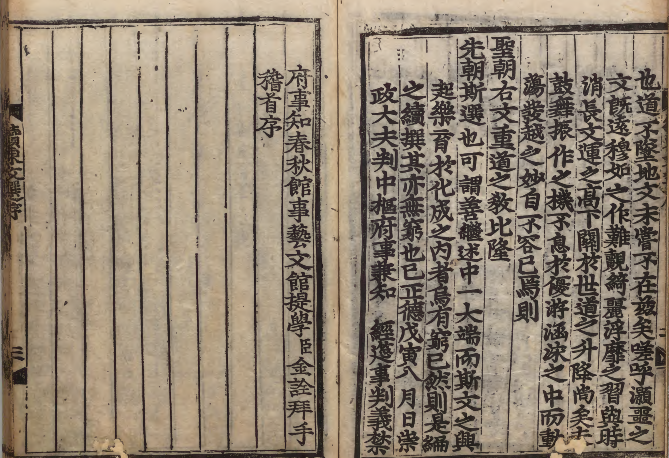 也道不墜地文未嘗不在玆矣嗟呼灝噩之
文旣遠穆如之作難觀綺麗浮靡之習與時
消長文運之高下關於世道之升降尚矣夫
鼓舞振作之機不息於優游涵泳之中而動
蕩發越之妙自不容已焉則
聖朝右文重道之敎比隆
先朝斯選也可謂善繼述中一大端而斯文之興
起樂育於化成之內者烏有窮已然則是編
之續撰其亦無窮也已正德戊寅八月日崇
政大夫判中樞府事兼知 經筵事判義禁
府事知春秋館事藝文館提學臣金詮拜手
稽首序
續東文選序
三